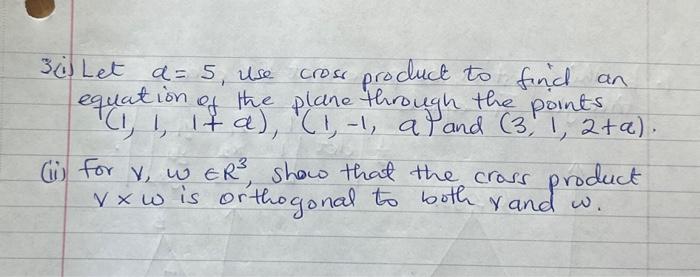 3(i) Let a = 5, use cross product to find an
equation of the plane through the points
(1, 1, 1+a), (1, -1, a) and (3, 1, 2+a).
(ii) for v, w ∈ R³, show that the cross product
v × w is orthogonal to both v and w.